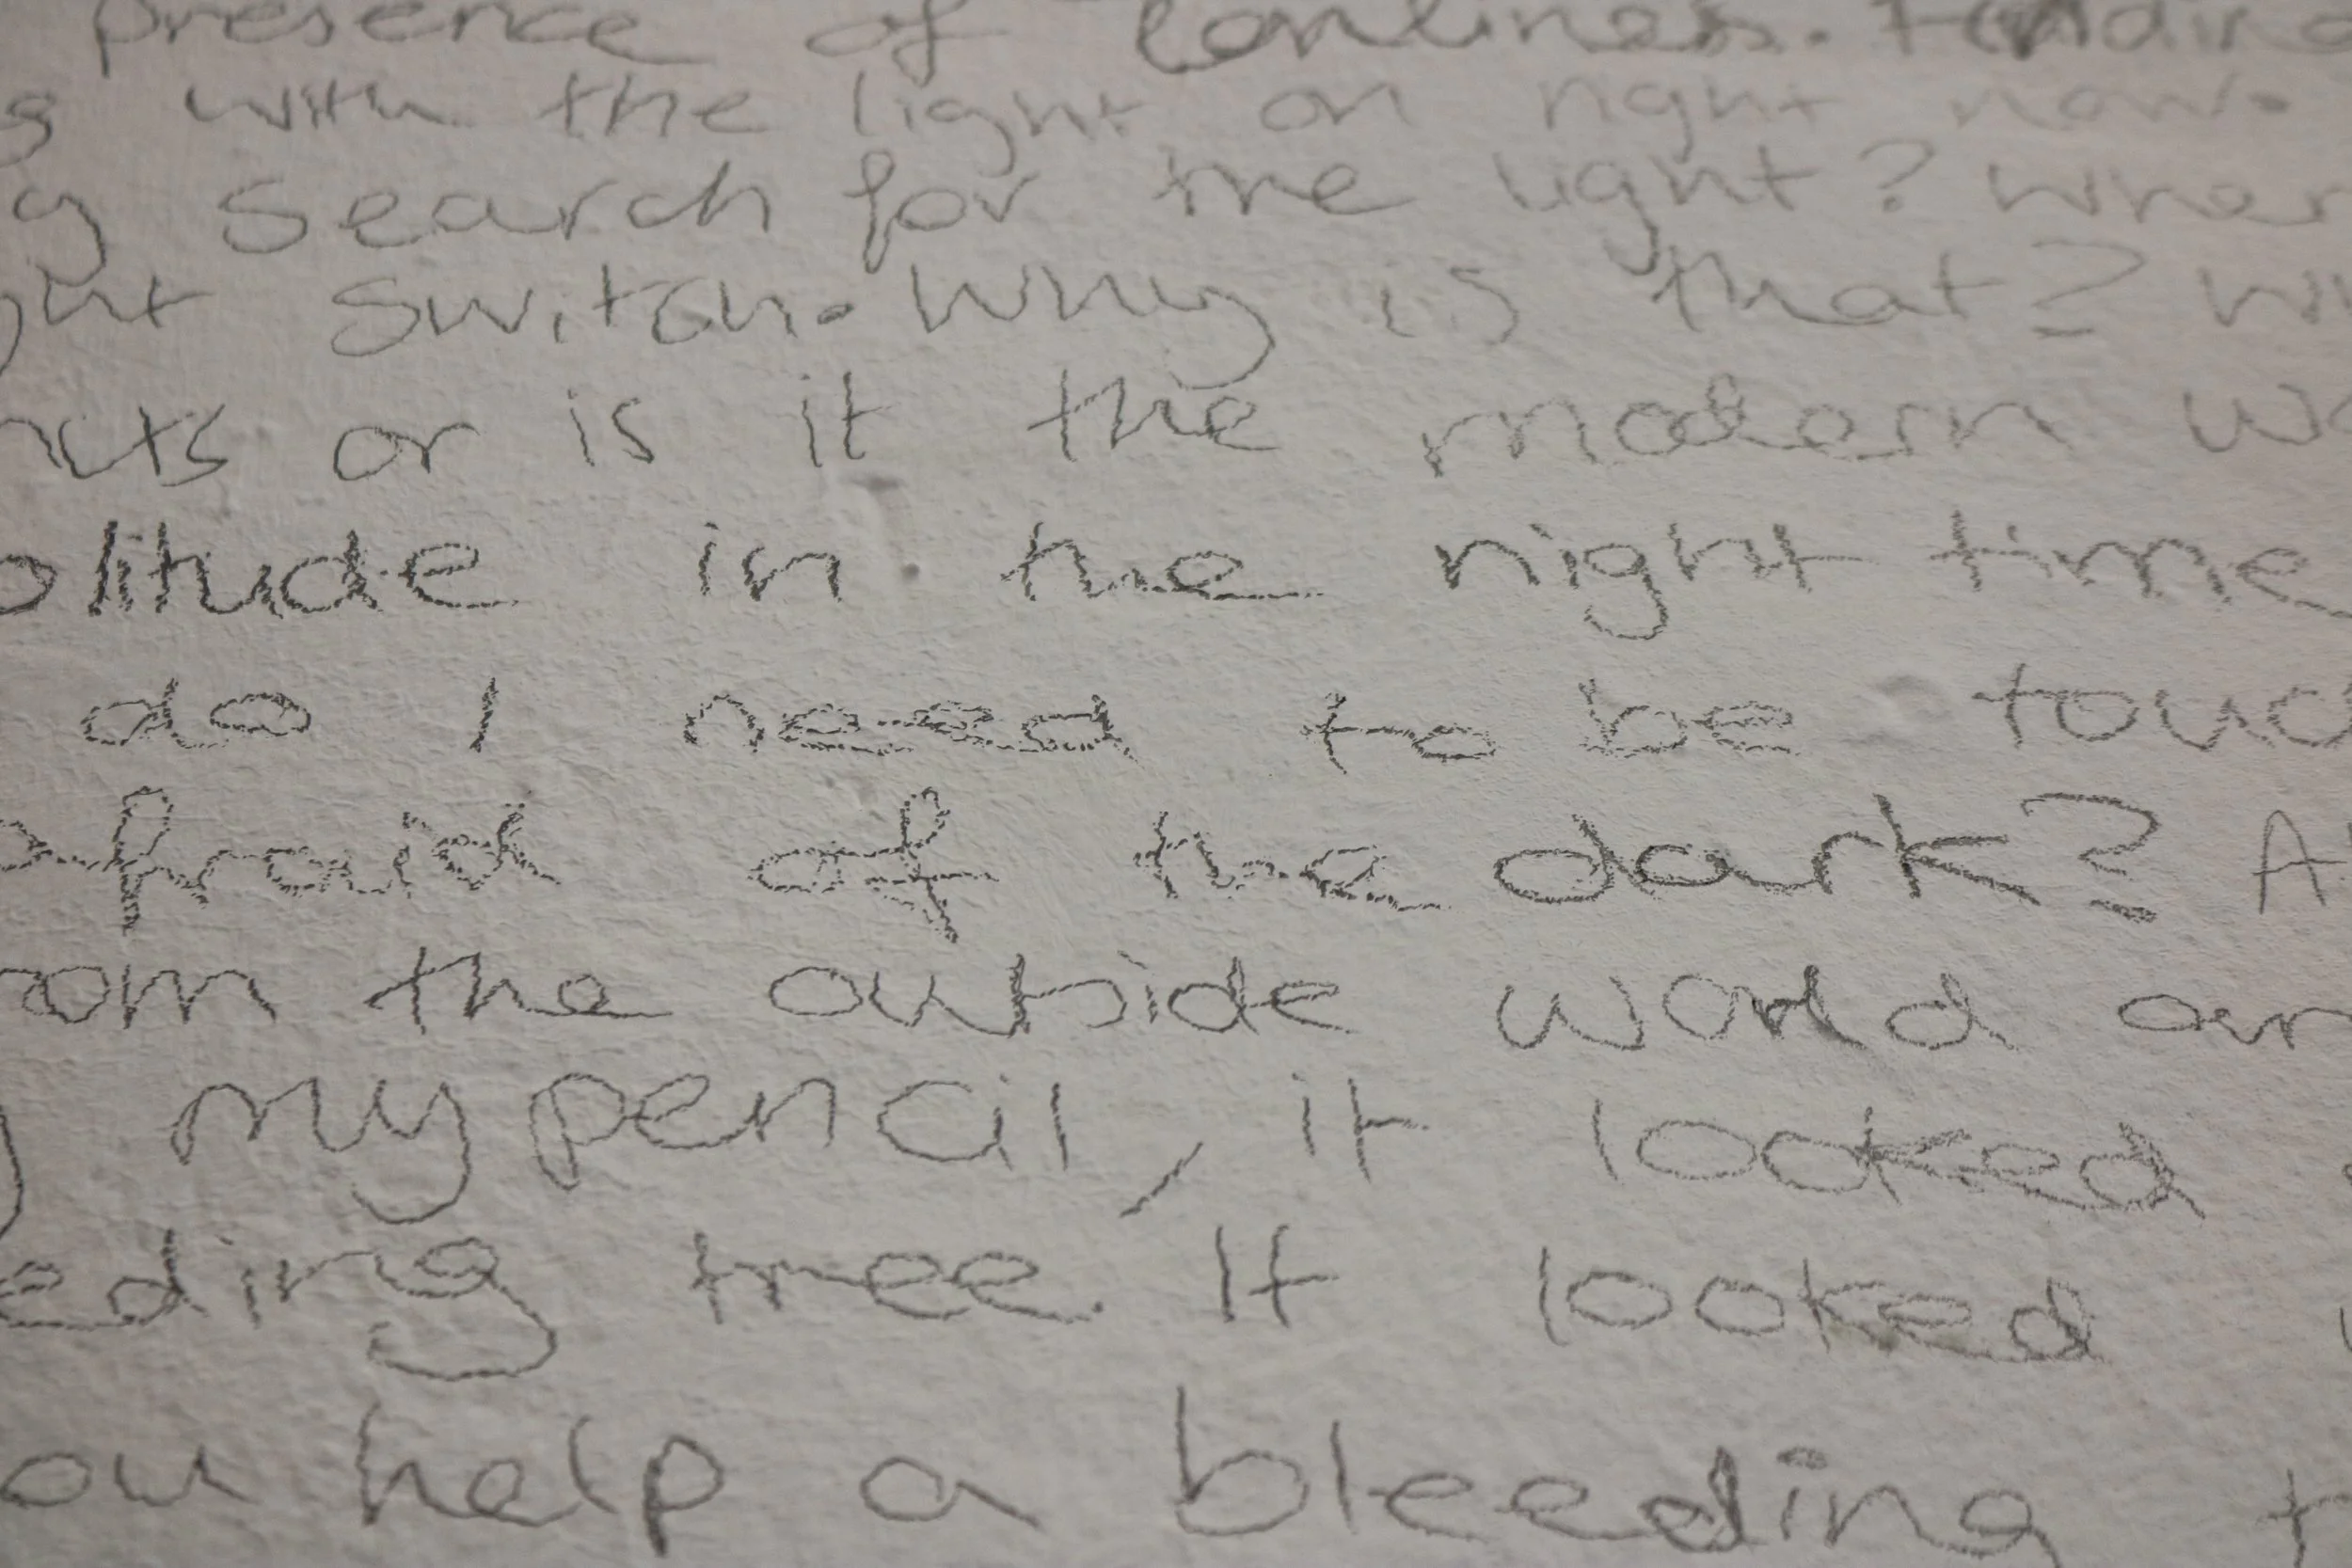 presence of lonlines.
with the light on right now.
search for the light?
switch. Why is that?
or is it the modern
olitude in the right time
do I need to be touc
afraid of the dark? A
rom the outside world an
my pencil, it looked
eding tree. It looked
ou help a bleeding